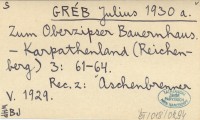 S
GRÉB Julius 1930 a.
Zum Oberzipser Bauernhaus.
- Karpathenland (Reichen-
berg) 3: 61-64.
Rec. z: Aschenbrenner
V. 1929.
BJ